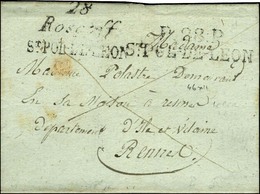 28
Roscoff
ST POL-DE-LEON
P. 28. P.
ST POL-DE-LEON
Madame
Madame
En Sa Maison a rennes
département d'Ile et Vilaine
Rennes